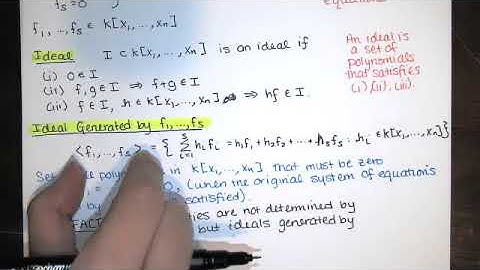 f_s = 0
equations
f_1, ..., f_s ∈ k[x_1, ..., x_n]
Ideal I ⊂ k[x_1, ..., x_n] is an ideal if
(i) 0 ∈ I
(ii) f, g ∈ I ⇒ f+g ∈ I
(iii) f ∈ I, h ∈ k[x_1, ..., x_n] ⇒ hf ∈ I.
An ideal is
a set of
polynomials
that satisfies
(i), (ii), (iii).
Ideal Generated by f_1, ..., f_s
<f_1, ..., f_s> = { Σ_{i=1}^{s} h_i f_i = h_1 f_1 + h_2 f_2 + ... + h_s f_s : h_i ∈ k[x_1, ..., x_n] }
Set in k[x_1, ..., x_n] that must be zero
= 0, (when the original system of equation's
by satisfied).
FACT are not determined by
but ideals generated by